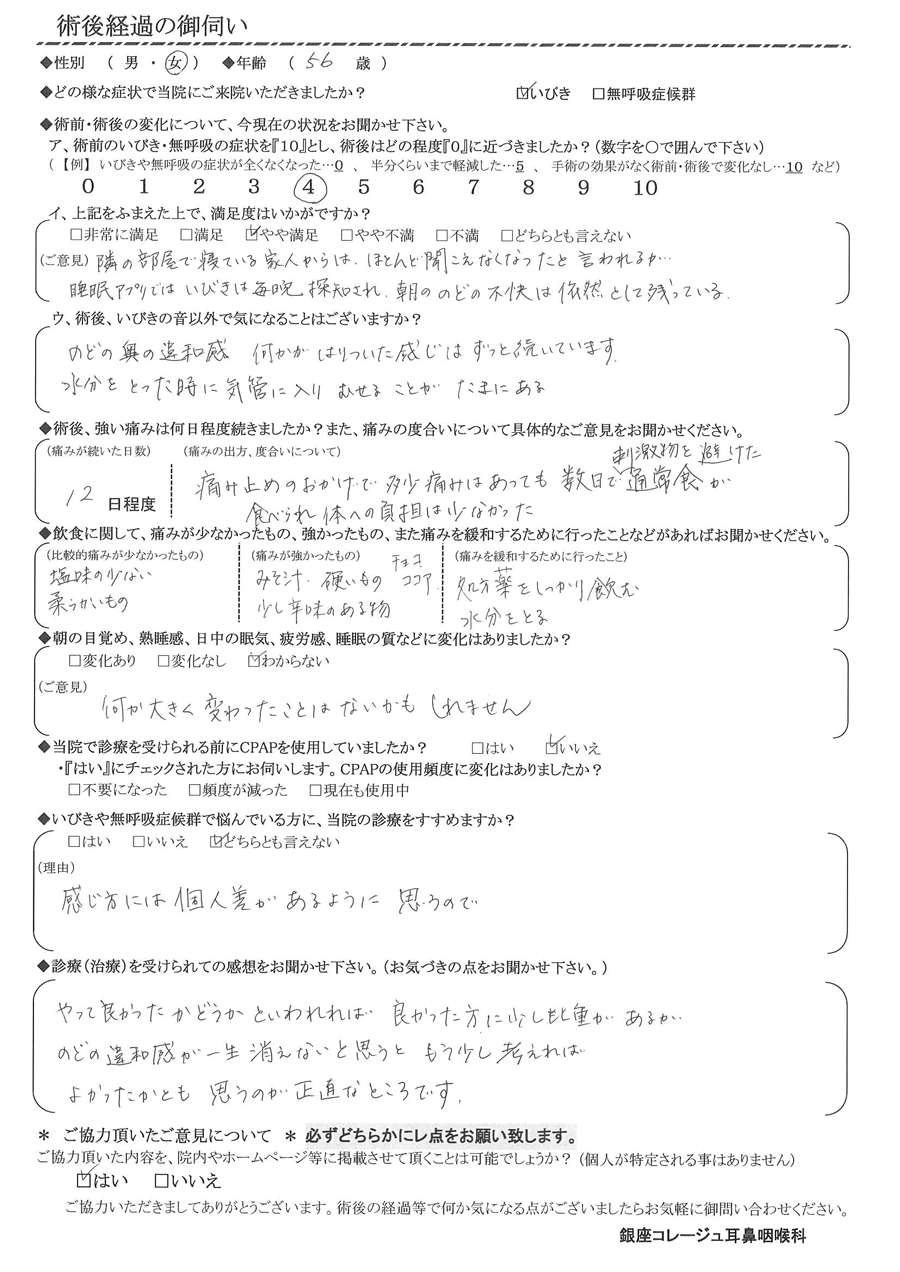 術後経過の御伺い
◆性別 ( 男 ・ 女 ) ◆年齢 ( 56 歳 )
◆どの様な症状で当院にご来院いただきましたか? ☑いびき □無呼吸症候群
◆術前・術後の変化について、今現在の状況をお聞かせ下さい。
ア、術前のいびき・無呼吸の症状を『10』とし、術後はどの程度『0』に近づきましたか?(数字を○で囲んで下さい)
(【例】いびきや無呼吸の症状が全くなくなった…0 、 半分くらいまで軽減した…5 、 手術の効果がなく術前・術後で変化なし…10 など)
0 1 2 3 4 5 6 7 8 9 10
イ、上記をふまえた上で、満足度はいかがですか?
□非常に満足 □満足 ☑やや満足 □やや不満 □不満 □どちらとも言えない
(ご意見) 隣の部屋で寝ている家人からは、ほとんど聞こえなくなったと言われるが…
睡眠アプリではいびきは毎晩探知され、朝ののどの不快は依然として残っている。
ウ、術後、いびきの音以外で気になることはございますか?
のどの奥の違和感 何かがはりついた感じはずっと続いています。
水分をとった時に気管に入りむせることがたまにある
◆術後、強い痛みは何日程度続きましたか?また、痛みの度合いについて具体的なご意見をお聞かせください。
(痛みが続いた日数) (痛みの出方、度合いについて) 刺激物を避けた
12 日程度 痛み止めのおかげで多少痛みはあっても数日で通常食が
食べられ体への負担は少なかった
◆飲食に関して、痛みが少なかったもの、強かったもの、また痛みを緩和するために行ったことなどがあればお聞かせください。
(比較的痛みが少なかったもの) (痛みが強かったもの) (痛みを緩和するために行ったこと)
塩味の少ない みそ汁、硬いもの チョコ ココア 処方薬をしっかり飲む
柔らかいもの 少し辛味のある物 水分をとる
◆朝の目覚め、熟睡感、日中の眠気、疲労感、睡眠の質などに変化はありましたか?
□変化あり □変化なし ☑わからない
(ご意見)
何か大きく変わったことはないかもしれません
◆当院で診療を受けられる前にCPAPを使用していましたか? □はい ☑いいえ
・『はい』にチェックされた方にお伺いします。CPAPの使用頻度に変化はありましたか?
□不要になった □頻度が減った □現在も使用中
◆いびきや無呼吸症候群で悩んでいる方に、当院の診療をすすめますか?
□はい □いいえ ☑どちらとも言えない
(理由)
感じ方には個人差があるように思うので
◆診療(治療)を受けられての感想をお聞かせ下さい。(お気づきの点をお聞かせ下さい。)
やって良かったかどうかといわれれば 良かった方に少し比重があるが…
のどの違和感が一生消えないと思うともう少し考えれば
よかったかとも思うのが正直なところです。
* ご協力頂いたご意見について * 必ずどちらかにレ点をお願い致します。
ご協力頂いた内容を、院内やホームページ等に掲載させて頂くことは可能でしょうか?(個人が特定される事はありません)
☑はい □いいえ
ご協力いただきましてありがとうございます。術後の経過等で何か気になる点がございましたらお気軽に御問い合わせください。
銀座コレージュ耳鼻咽喉科